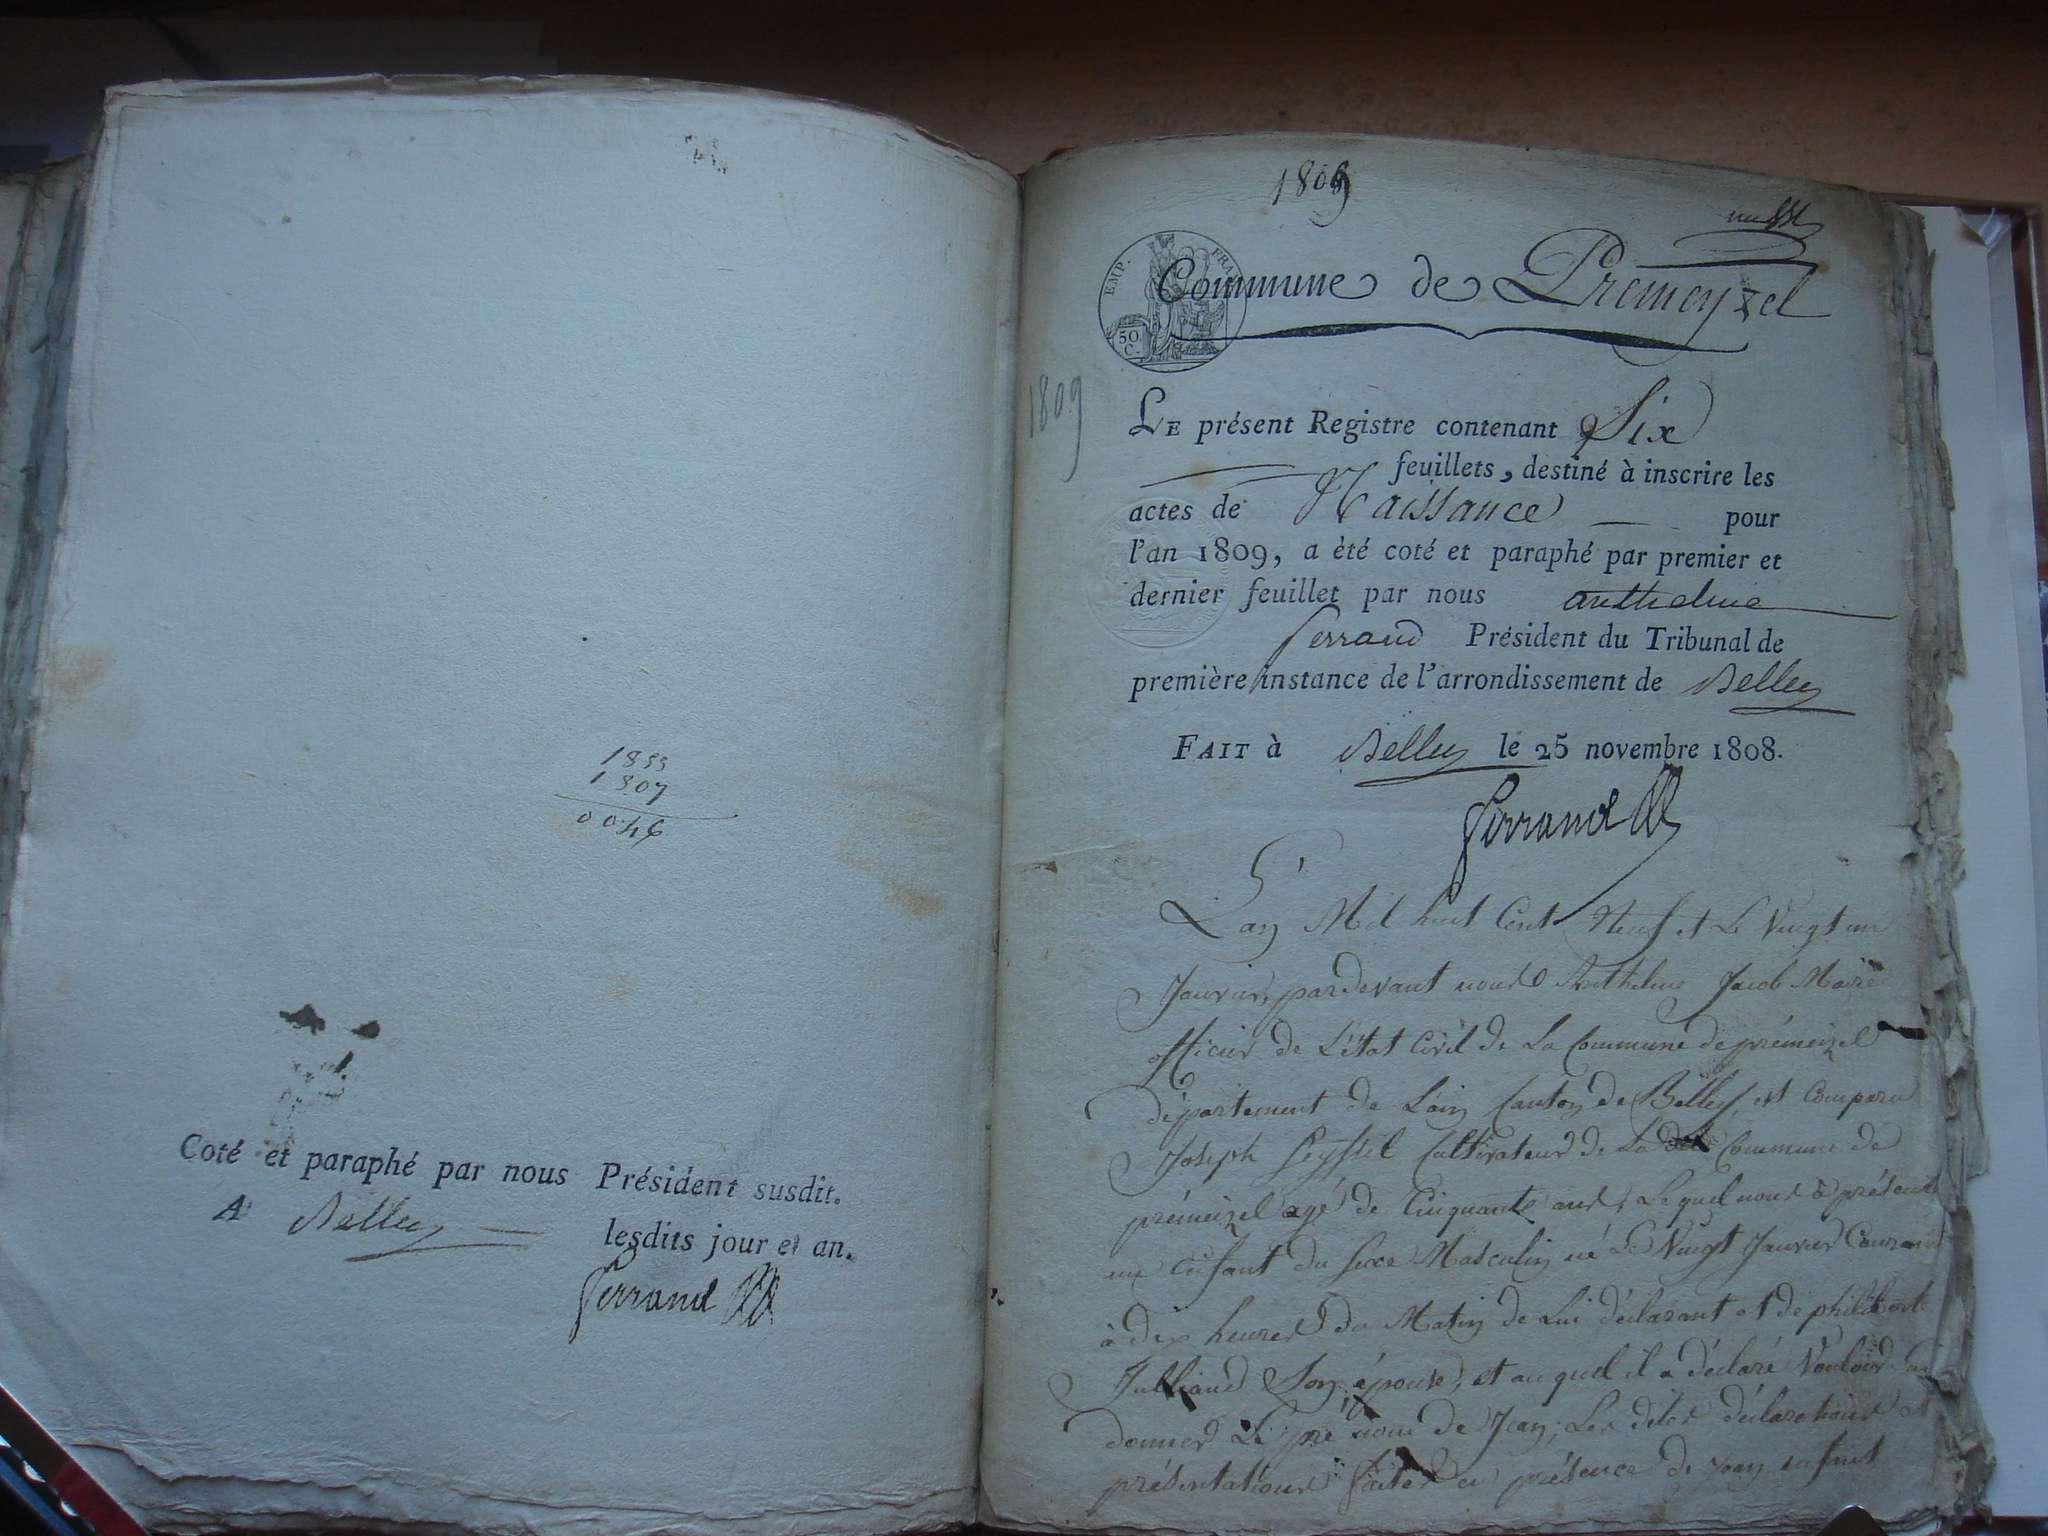 1855
1807
0046
Coté et paraphé par nous Président susdit.
A Belley lesdits jour et an.
Ferrand
1809
EMP. FRAN
50 C.
Commune de Premeyzel
1809
LE présent Registre contenant Six
feuillets, destiné à inscrire les
actes de Naissance pour
l'an 1809, a été coté et paraphé par premier et
dernier feuillet par nous anthelme
ferrand Président du Tribunal de
première instance de l'arrondissement de Belley
FAIT à Belley le 25 novembre 1808.
Ferrand
L'an Mil huit Cent Neuf et Le Vingt un
Janvier, pardevant nous Anthelme Jacob Maire
officier de L'état Civil de La Commune de prémeizel
département de L'ain Canton de Belley, est Comparu
Joseph peyssel Cultivateur de La dte Commune de
prémeizel agé de Cinquante ans, Le quel nous a présenté
un enfant du sexe Masculin né Le Vingt Janvier Courant
à dix heures du Matin de Lui déclarant et de philiberte
Julliand Son épouse, et au quel il a déclaré Vouloir
donner Le pré nom de Jean; Les dites déclarations et
présentations faites en présence de Jean